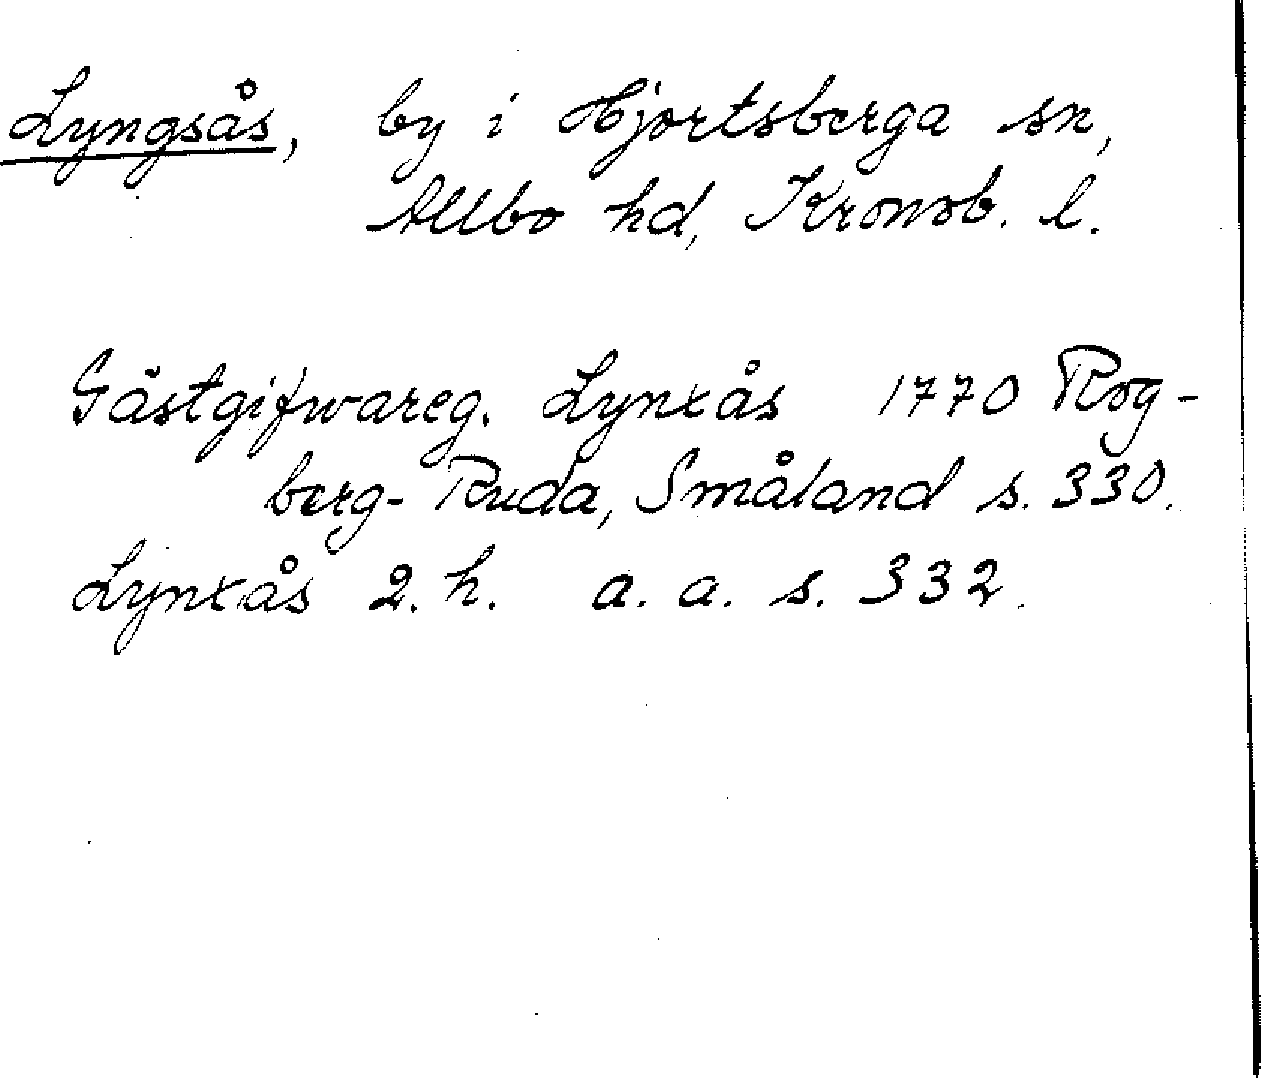 Lyngsås, by i Hjortsberga sn,
Allbo hd, Kronob. l.
Gästgifwareg. Lynxås 1770 Rog-
berg-Ruda, Småland s. 330.
Lynxås 2. h. a. a. s. 332.